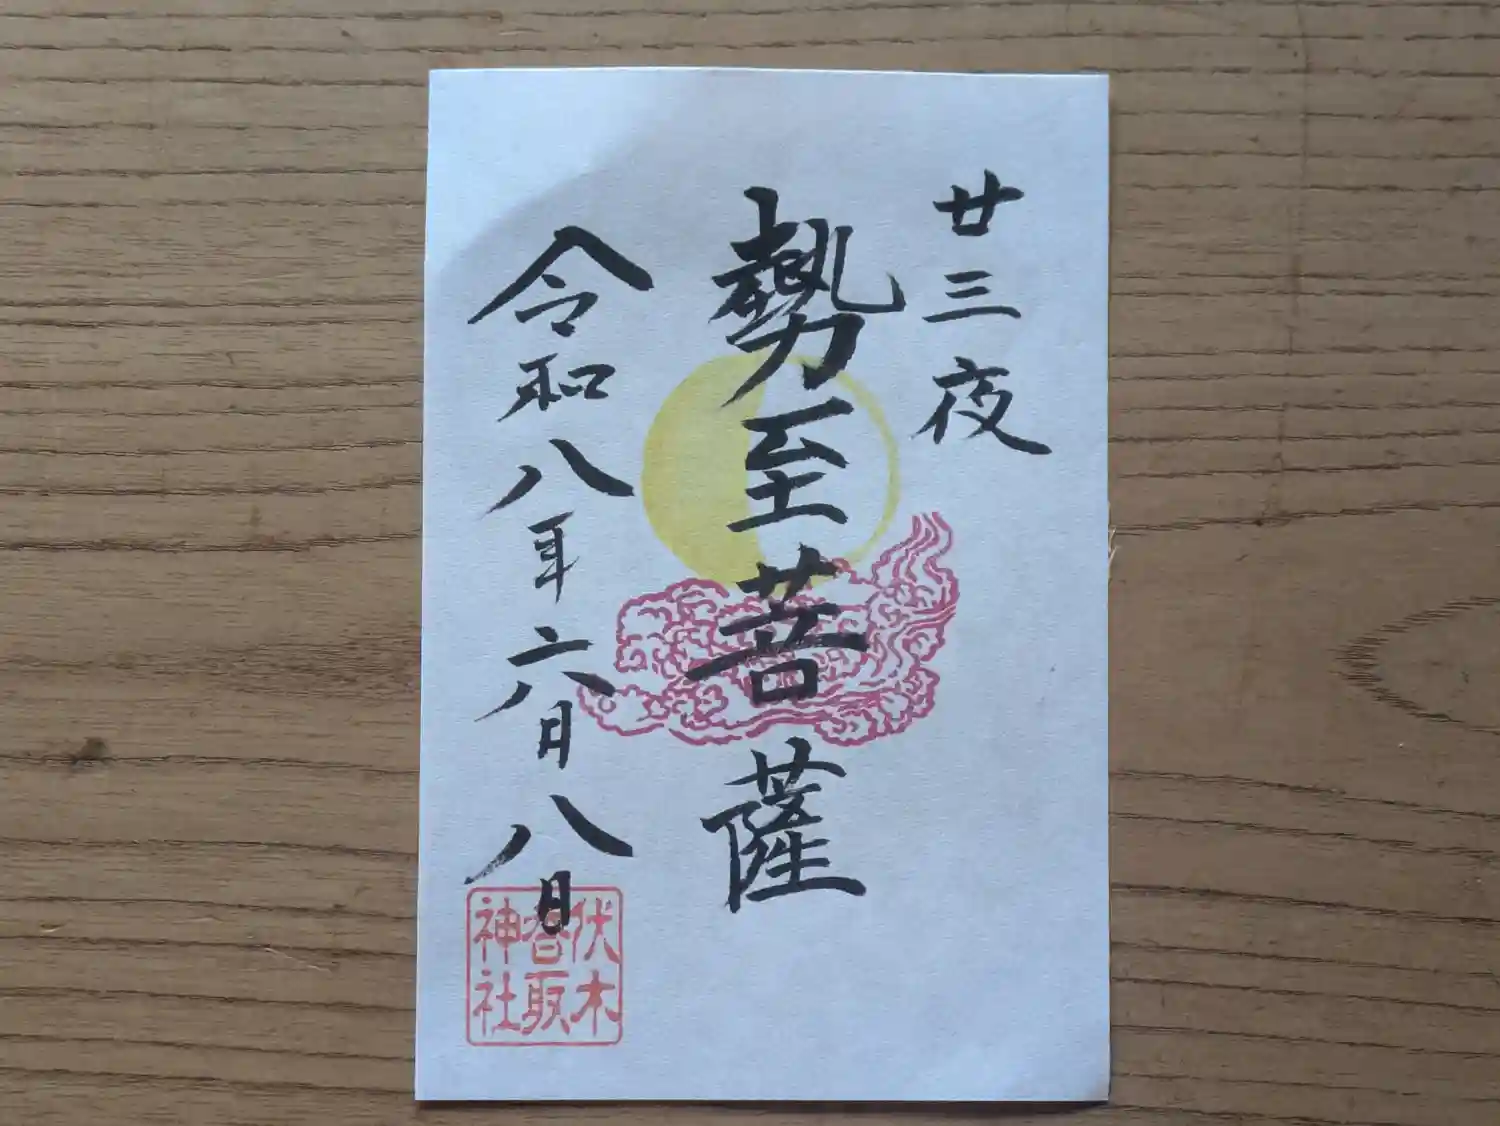 廿三夜
勢至菩薩
令和八年六月八日
伏木
香取
神社